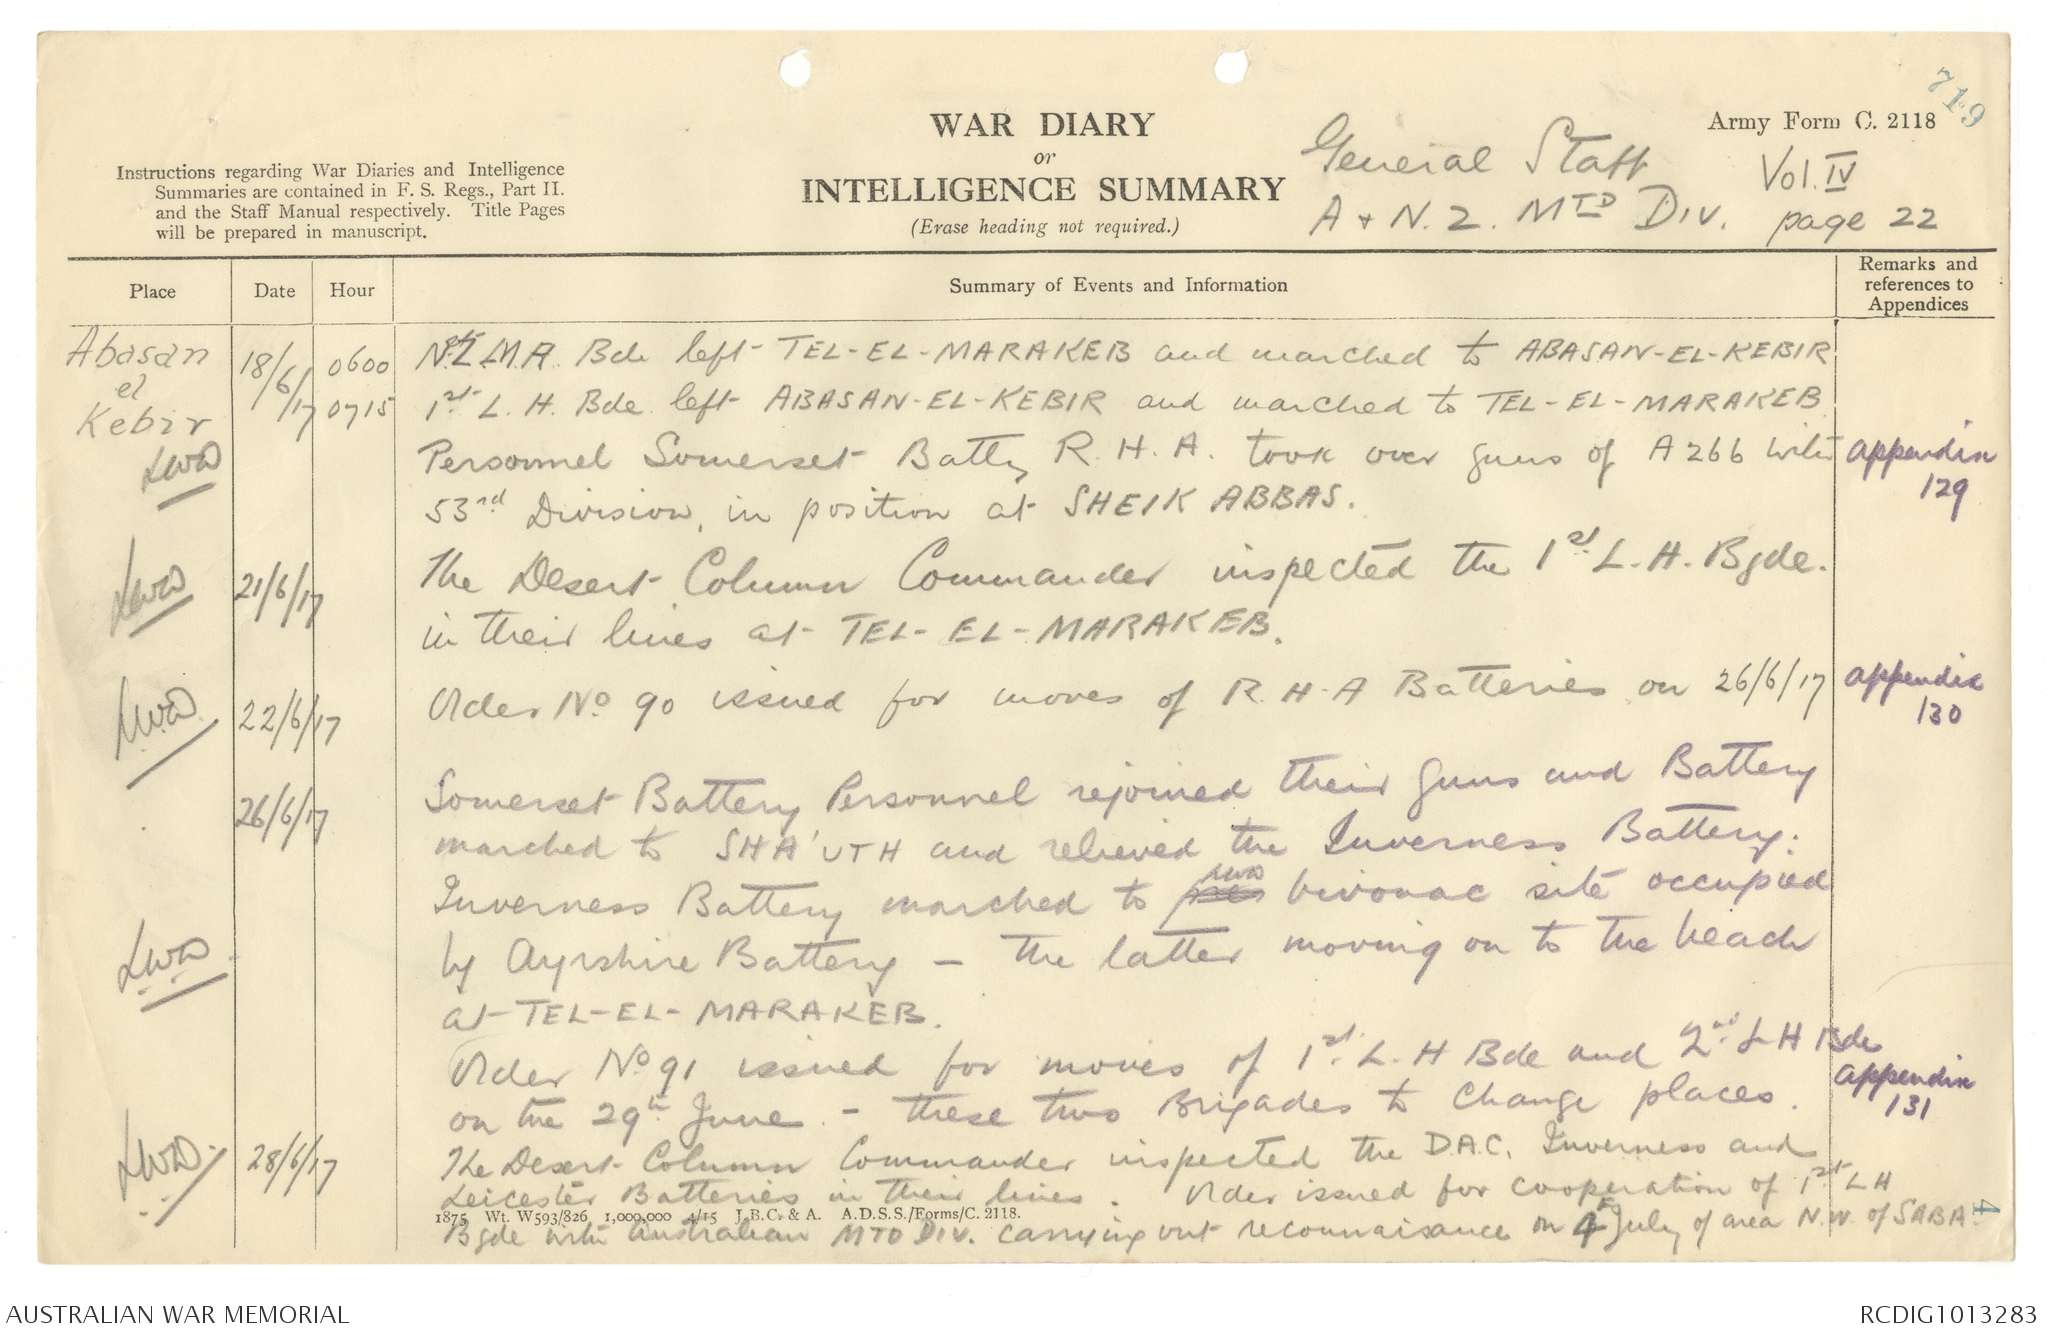 719
WAR DIARY
or
INTELLIGENCE SUMMARY
(Erase heading not required.)
Army Form C. 2118
General Staff
A & N.Z. MTD DIV.
Vol. IV
page 22
Instructions regarding War Diaries and Intelligence
Summaries are contained in F. S. Regs., Part II.
and the Staff Manual respectively. Title Pages
will be prepared in manuscript.
Place
Date
Hour
Summary of Events and Information
Remarks and
references to
Appendices
Abasan
el
Kebir
18/6/17
0600 N.Z.M.R. Bde left TEL-EL-MARAKEB and marched to ABASAN-EL-KEBIR
0715 1st L. H. Bde left ABASAN-EL-KEBIR and marched to TEL-EL-MARAKEB
Personnel Somerset Batty R.H.A. took over guns of A 266 with
53rd Division, in position at SHEIK ABBAS.
appendix
129
21/6/17 The Desert Column Commander inspected the 1st L. H. Bgde.
in their lines at TEL-EL-MARAKEB.
22/6/17 Order No 90 issued for moves of R.H.A Batteries on 26/6/17
appendix
130
26/6/17 Somerset Battery Personnel rejoined their guns and Battery
marched to SHA'UTH and relieved the Inverness Battery.
Inverness Battery marched to bivouac site occupied
by Ayrshire Battery – the latter moving on to the beach
at TEL-EL-MARAKEB.
Order No 91 issued for moves of 1st L. H Bde and 2nd L H Bde
on the 29th June – these two Brigades to change places.
appendix
131
28/6/17 The Desert Column Commander inspected the D.A.C. Inverness and
Leicester Batteries in their lines. Order issued for cooperation of 1st LH
Bgde with Australian MTD DIV. carrying out reconnaisance on 4th July of area N.W. of SABA.
4
1875 Wt. W593/826 1,000,000 4/15 J.B.C. & A. A.D.S.S./Forms/C. 2118.
AUSTRALIAN WAR MEMORIAL
RCDIG1013283